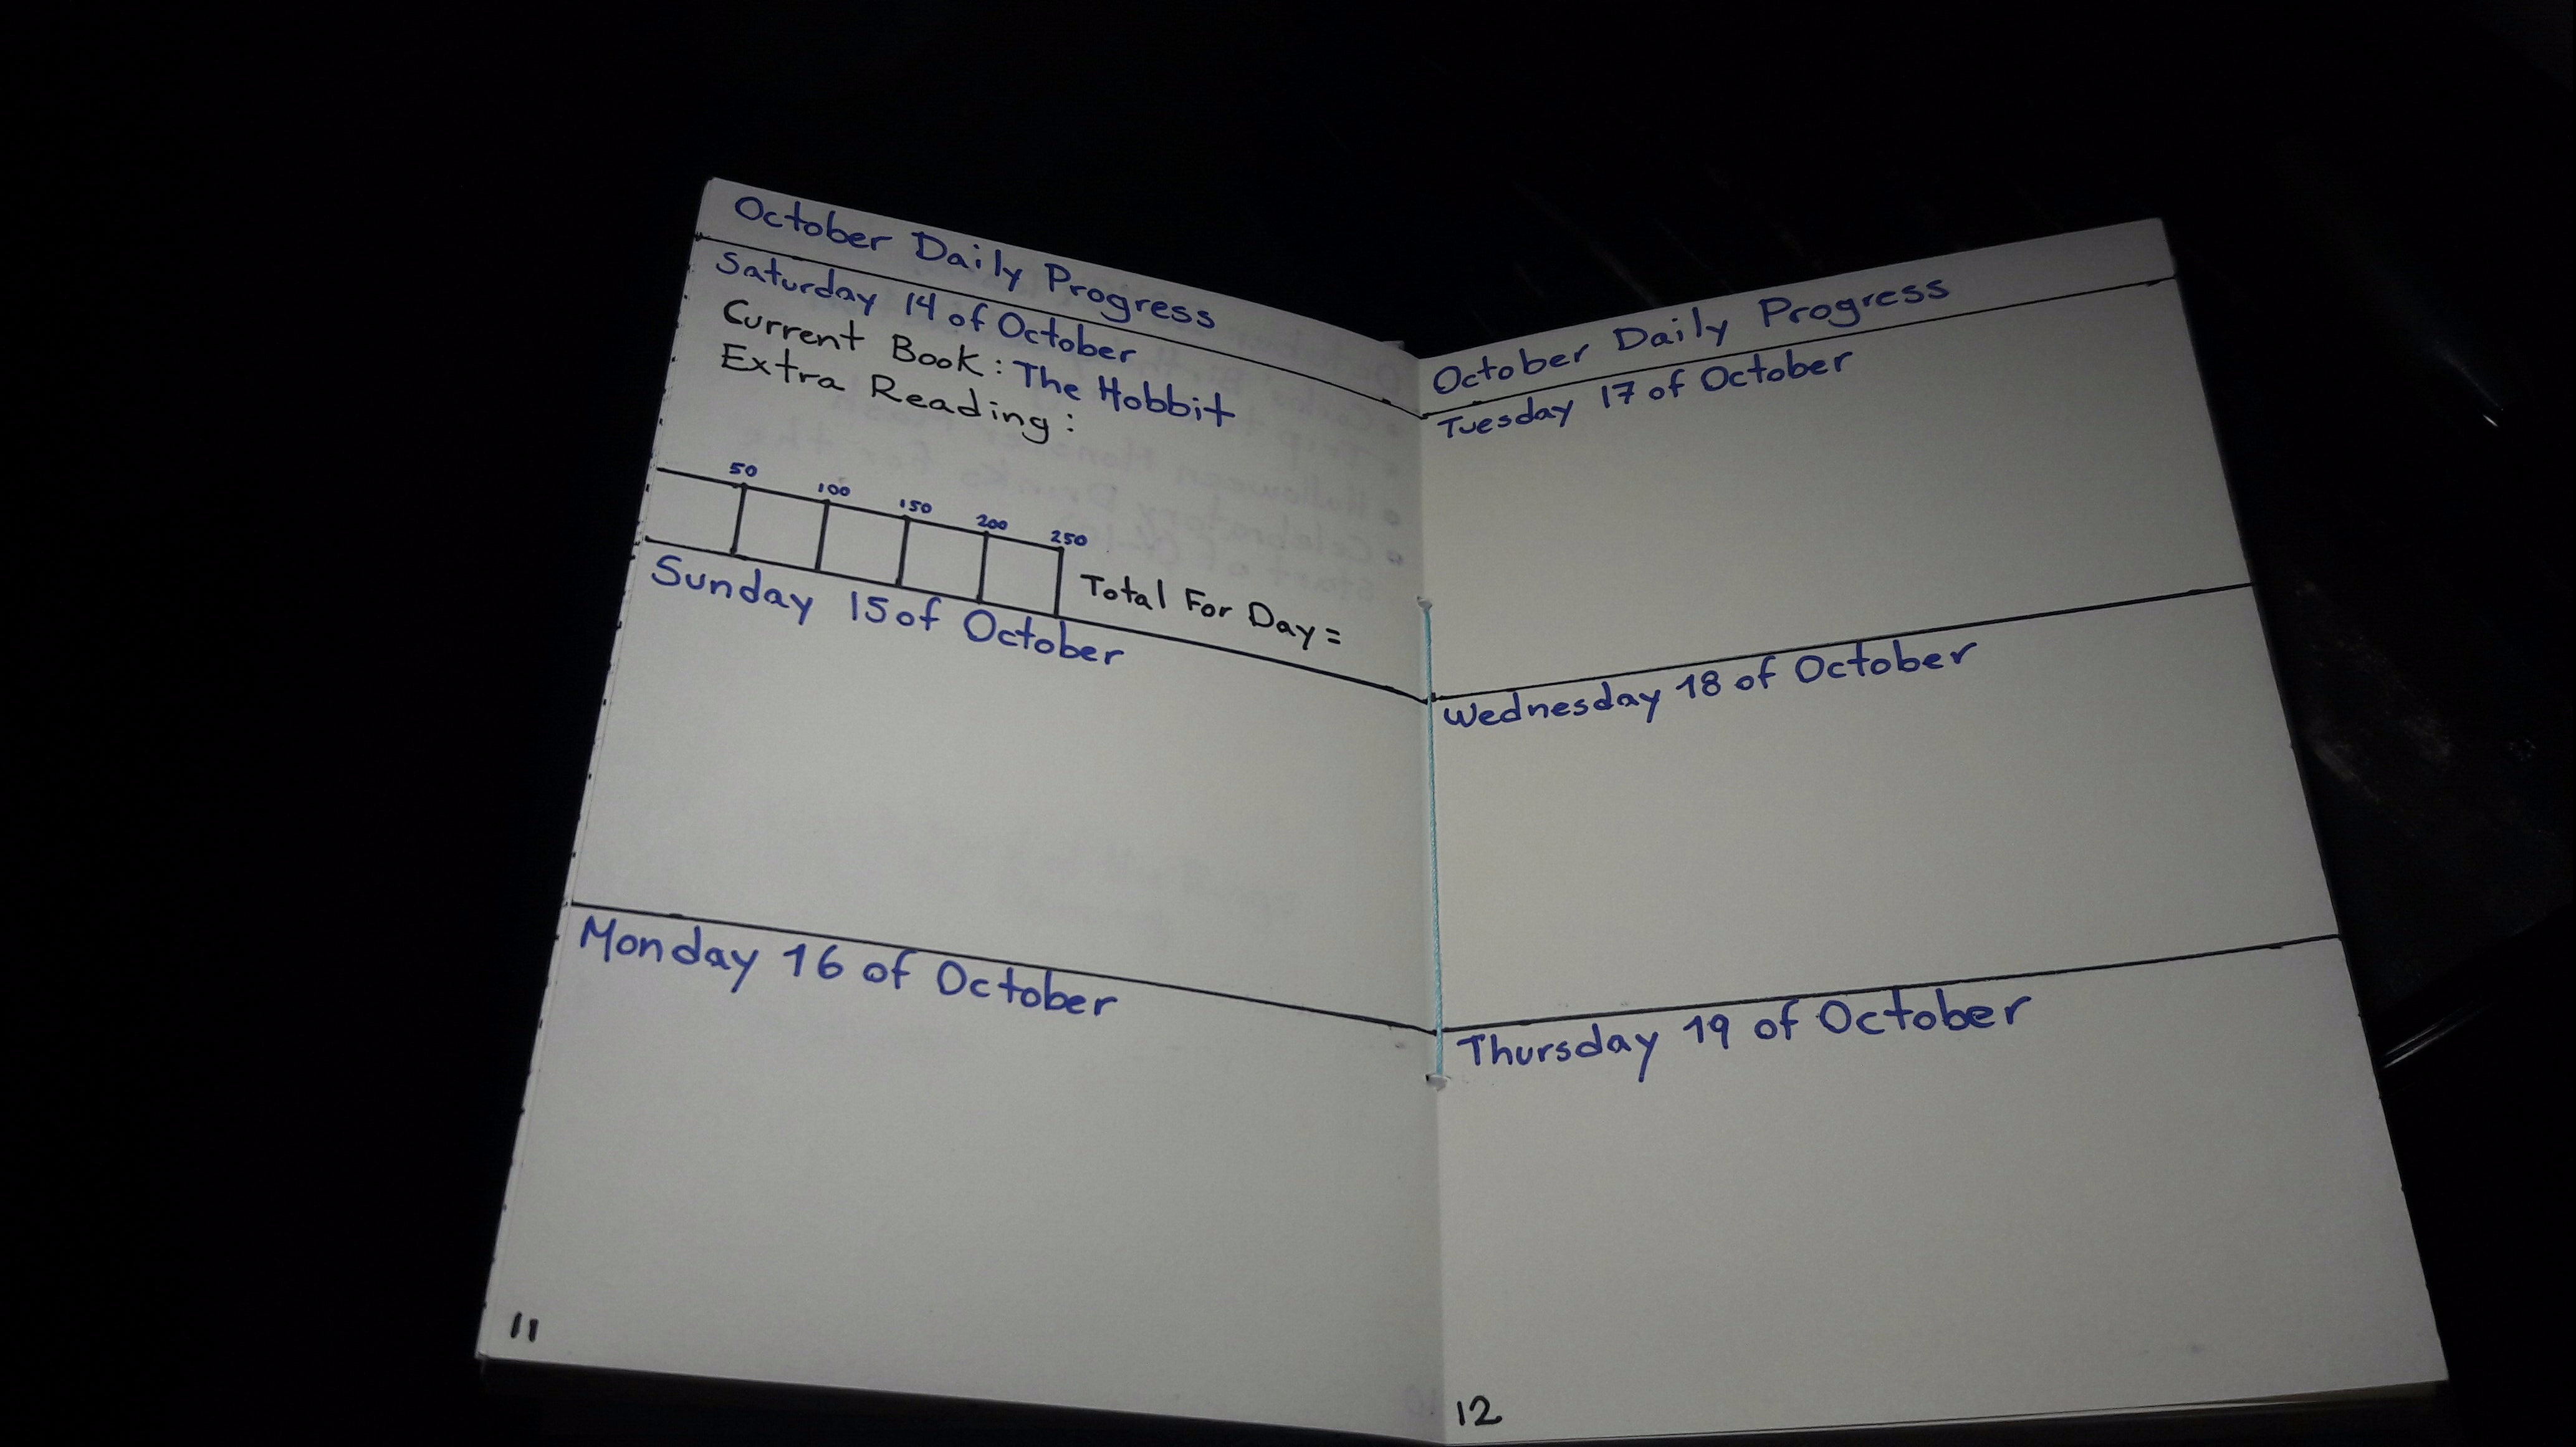 October Daily Progress
Saturday 14 of October
Current Book: The Hobbit
Extra Reading:
50 100 150 200 250
Total For Day =
Sunday 15 of October
Monday 16 of October
11
October Daily Progress
Tuesday 17 of October
Wednesday 18 of October
Thursday 19 of October
12